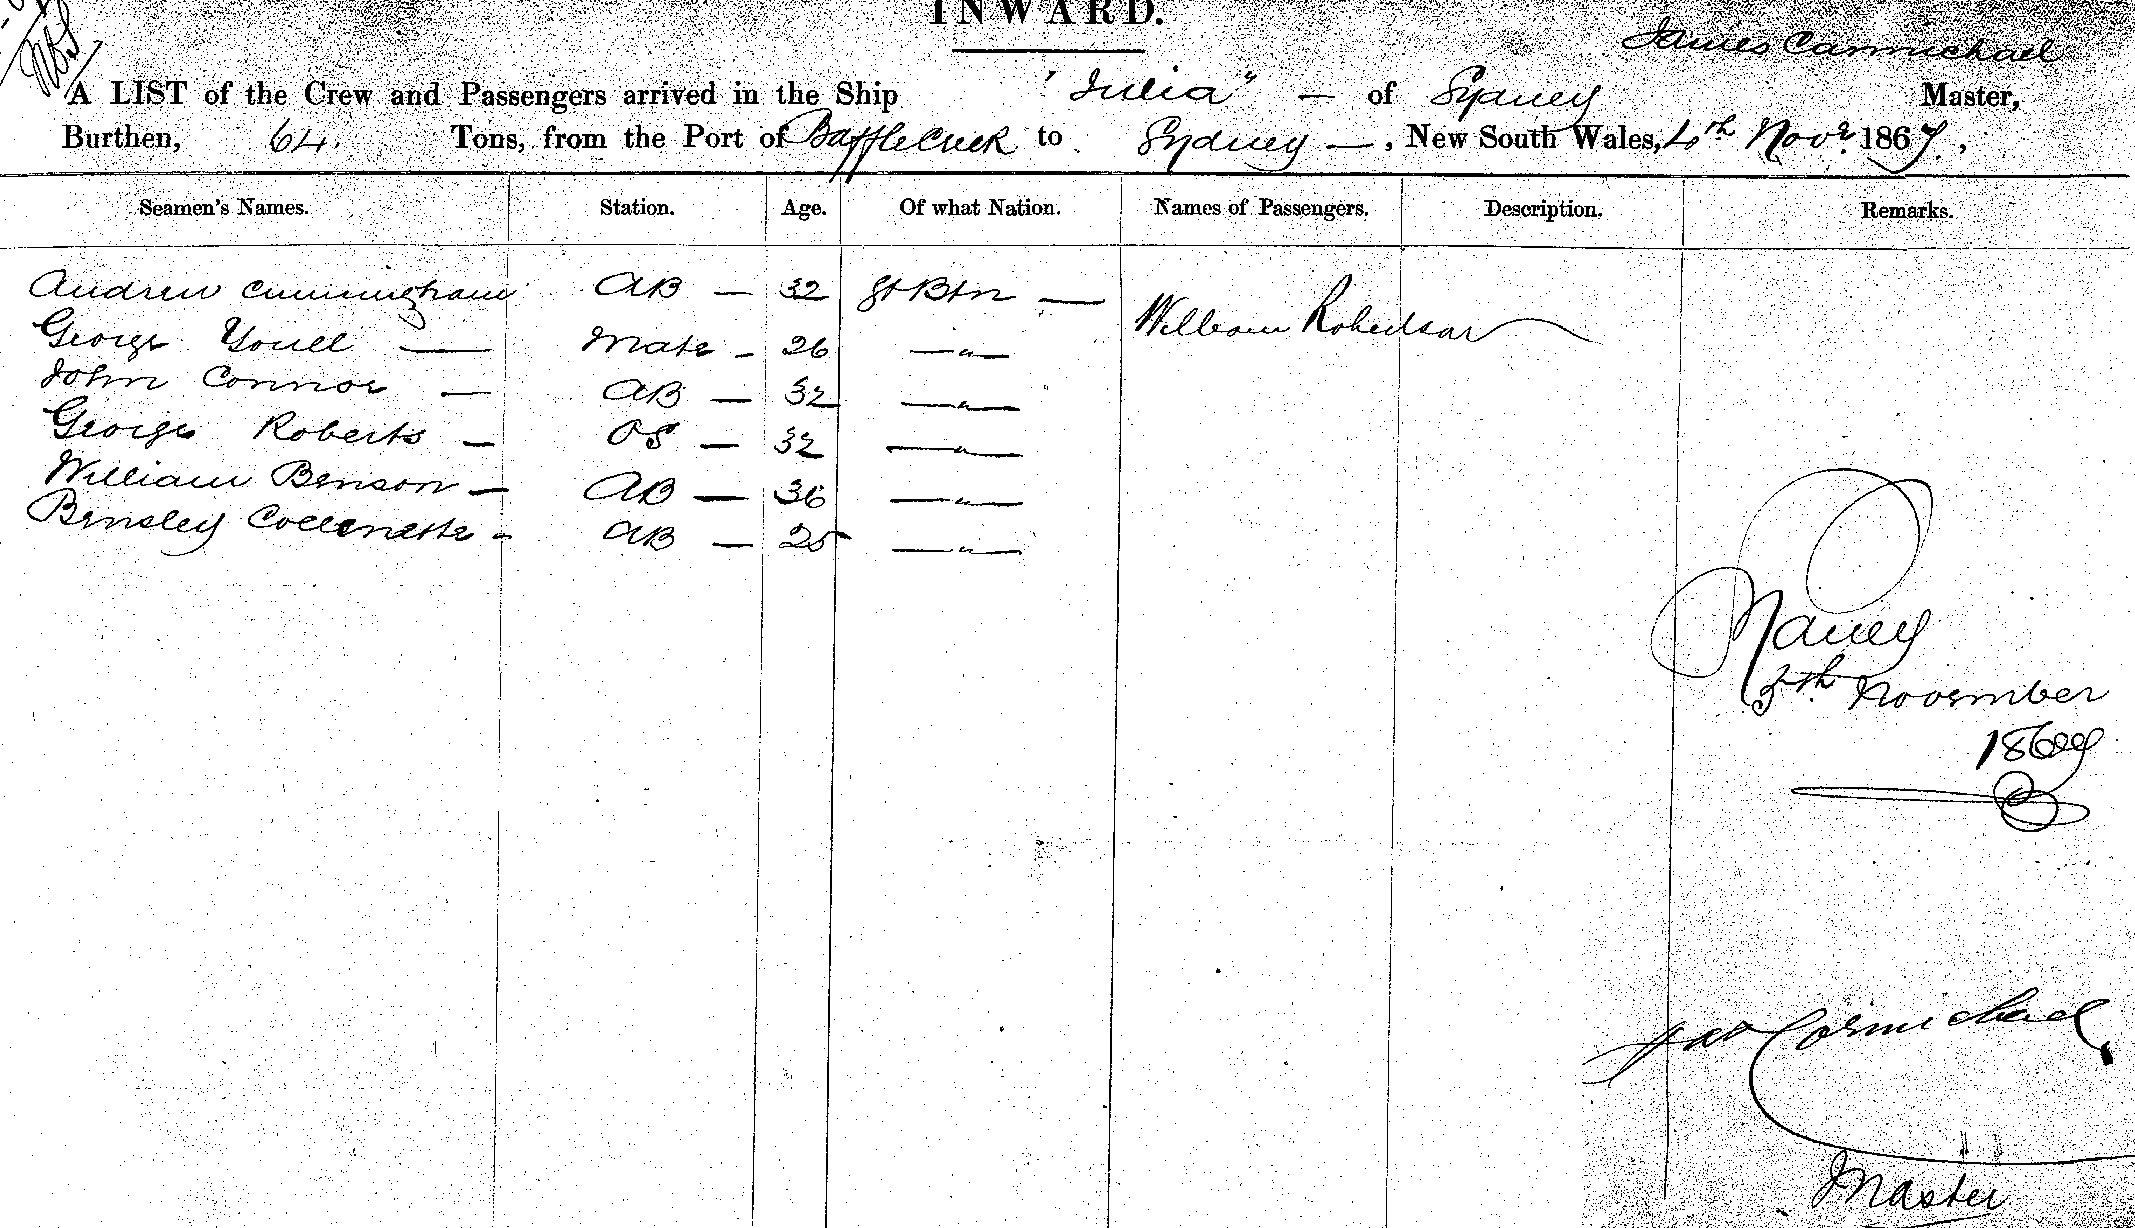 INWARD.
James Carmichael
A LIST of the Crew and Passengers arrived in the Ship "Julia" — of Sydney Master,
Burthen, 64 Tons, from the Port of Baffle Creek to Sydney —, New South Wales, 4th Novr. 1867,
Seamen's Names. Station. Age. Of what Nation. Names of Passengers. Description. Remarks.
Andrew Cunningham AB — 32 Gt Btn —
William Robertson
George Youll — Mate - 26 —"—
John Connor — AB — 32 —"—
George Roberts — OS — 32 —"—
William Benson — AB — 36 —"—
AB — 25 —"—
5th November
1867
Jas Carmichael
Master